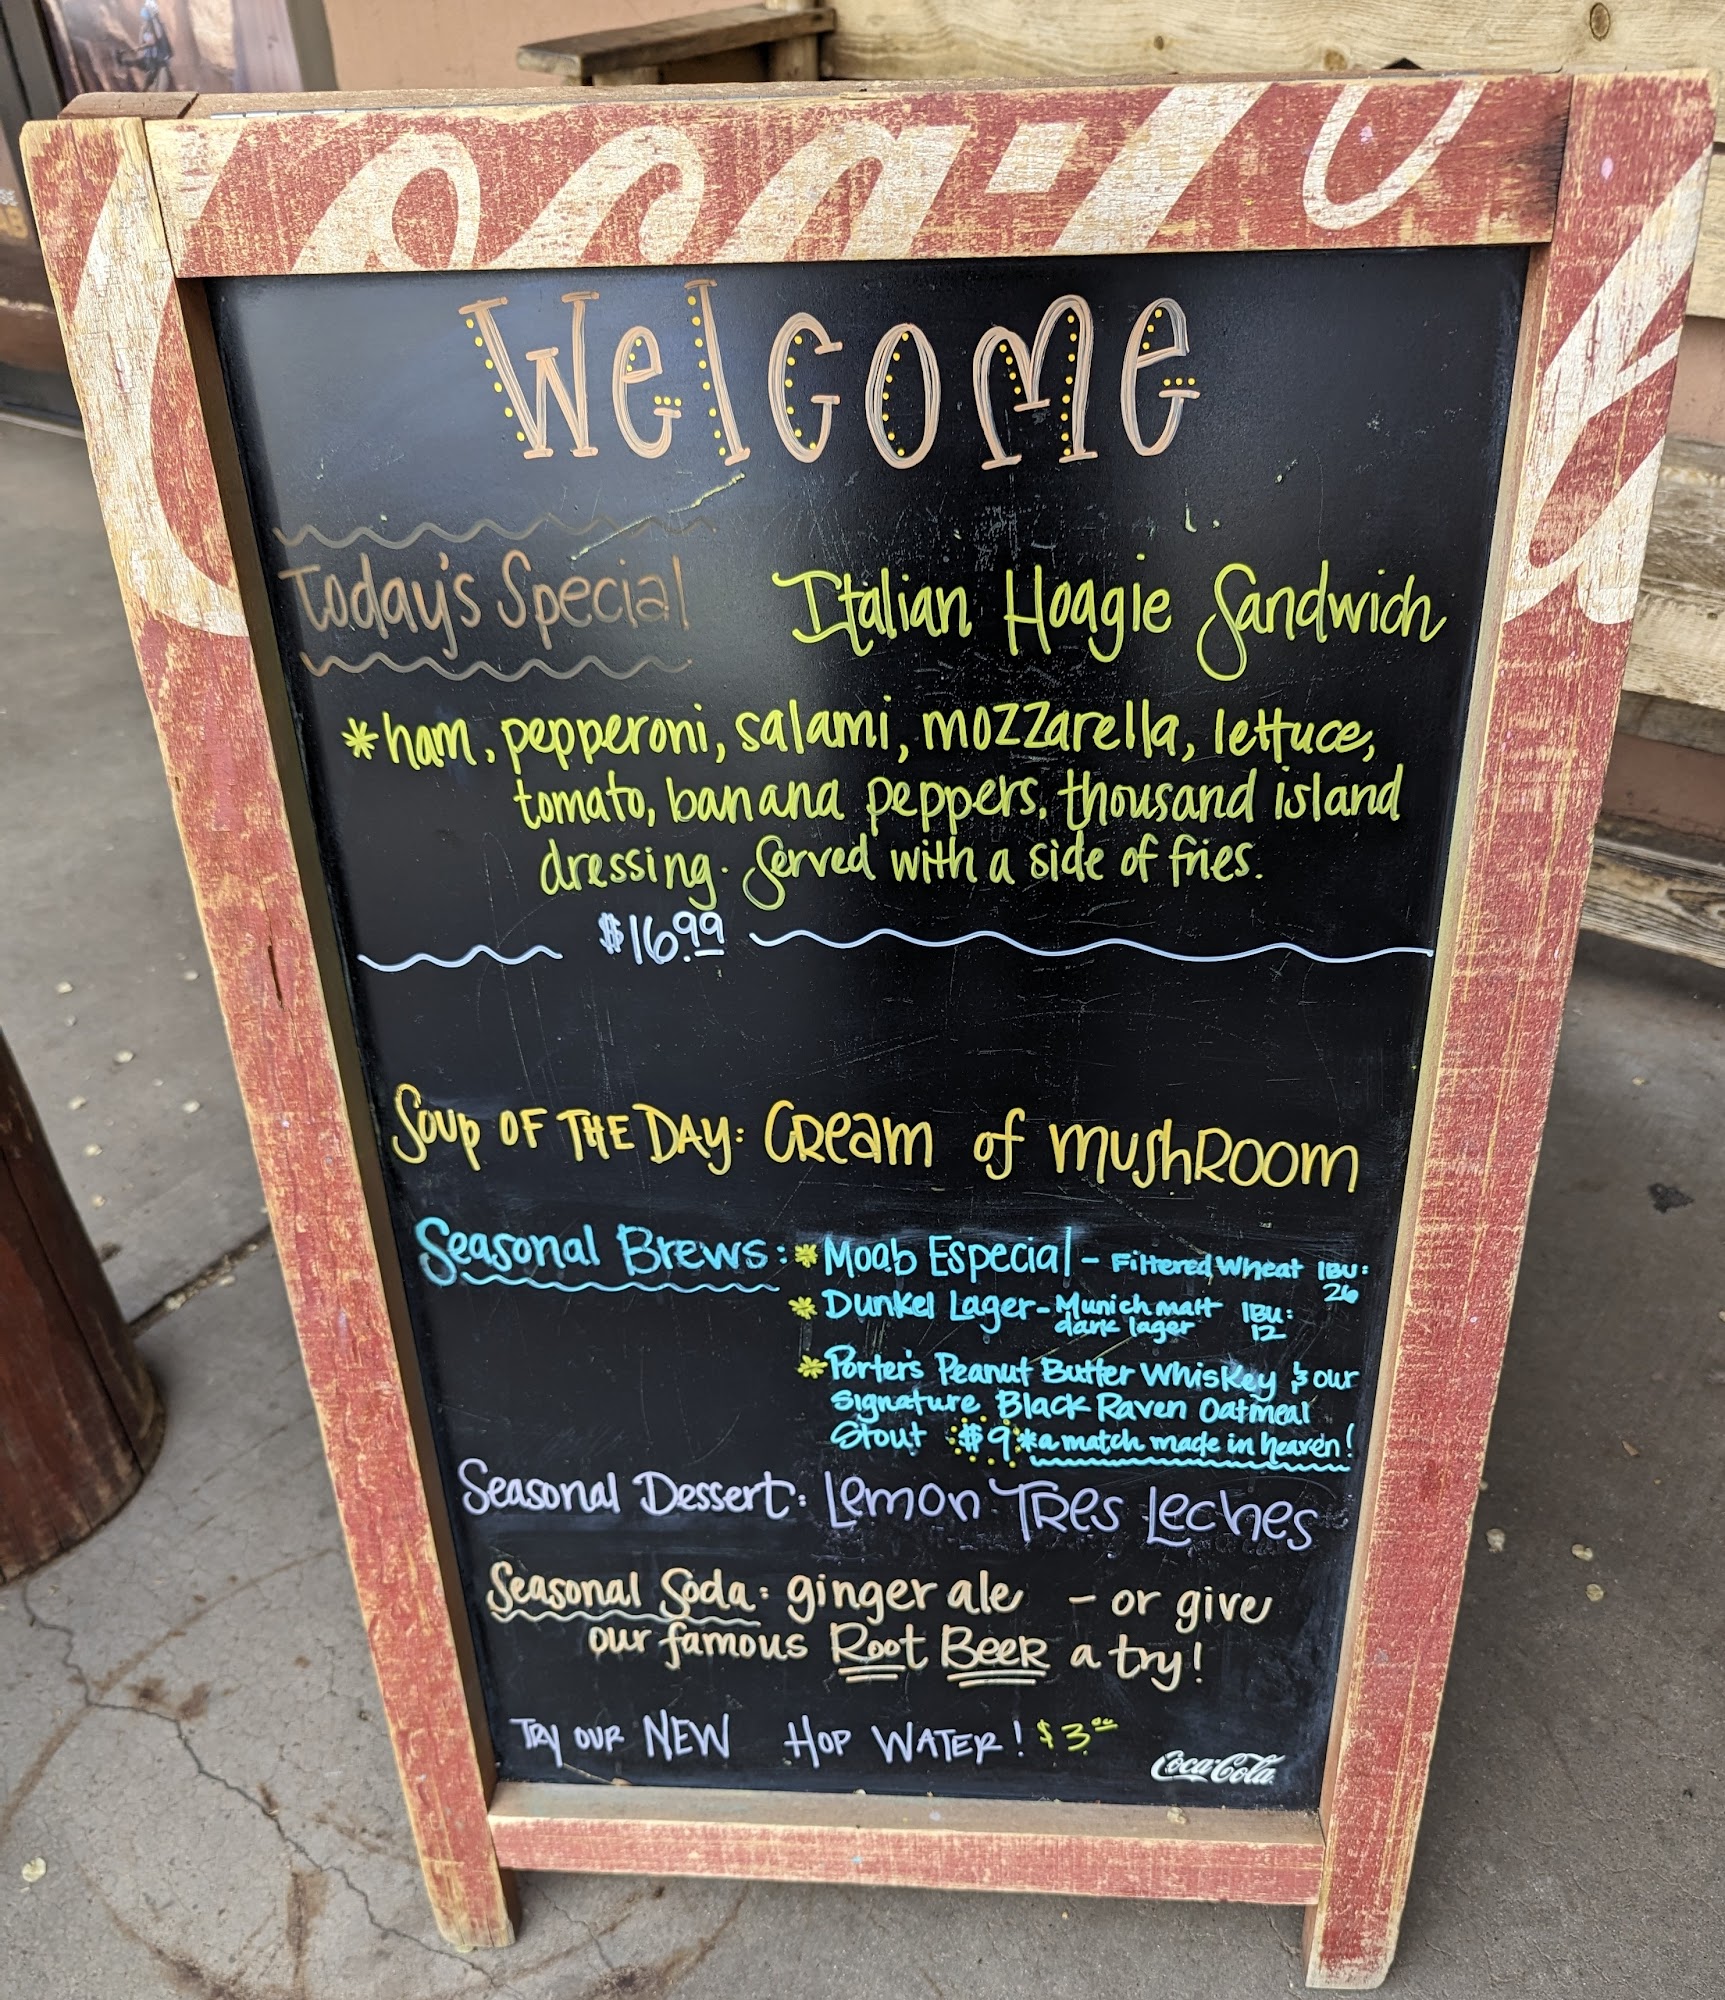 Coca-Co
Welcome
Today's Special
Italian Hoagie Sandwich
*ham, pepperoni, salami, mozzarella, lettuce,
tomato, banana peppers, thousand island
dressing. Served with a side of fries.
$16.99
Soup of the Day: Cream of mushroom
Seasonal Brews: *Moab Especial - Filtered Wheat IBU:
26
*Dunkel Lager - Munich malt IBU:
dark lager 12
*Porter's Peanut Butter Whiskey & our
signature Black Raven Oatmeal
Stout $9 *a match made in heaven!
Seasonal Dessert: Lemon Tres Leches
Seasonal Soda: ginger ale - or give
our famous Root Beer a try!
Try our NEW Hop Water! $3.00
Coca-Cola